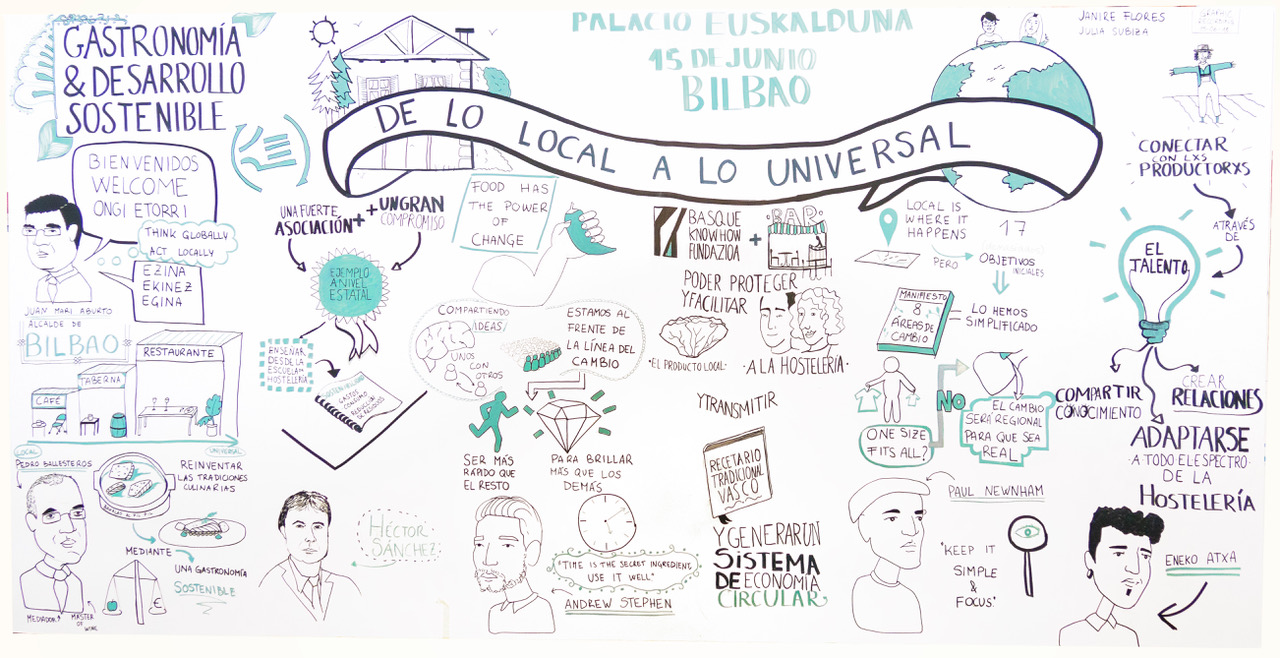 GASTRONOMÍA
& DESARROLLO
SOSTENIBLE
PALACIO EUSKALDUNA
15 DE JUNIO
BILBAO
JANIRE FLORES
JULIA SUBIZA
DE LO LOCAL A LO UNIVERSAL
BIENVENIDOS
WELCOME
ONGI ETORRI
THINK GLOBALLY
ACT LOCALLY
EZINA
EKINEZ
EGINA
JUAN MARI ABURTO
ALCALDE DE
BILBAO
CAFÉ
TABERNA
RESTAURANTE
LOCAL
UNIVERSAL
PEDRO BALLESTEROS
REINVENTAR
LAS TRADICIONES
CULINARIAS
MEDIANTE
UNA GASTRONOMÍA
SOSTENIBLE
€
MEDIADOR
MASTER
OF
WINE
UNA FUERTE
ASOCIACIÓN
+
+ UN GRAN
COMPROMISO
EJEMPLO
A NIVEL
ESTATAL
ENSEÑAR
DESDE LA
ESCUELA
HOSTELERÍA
SOSTENIBILIDAD
GASTOS
CONSUMO
REDUCCIÓN
DE RESIDUOS
HÉCTOR
SÁNCHEZ
FOOD HAS
THE POWER
OF
CHANGE
COMPARTIENDO
IDEAS/
UNOS
CON
OTROS
ESTAMOS AL
FRENTE DE
LA LÍNEA DEL
CAMBIO
SER MÁS
RÁPIDO QUE
EL RESTO
PARA BRILLAR
MÁS QUE LOS
DEMÁS
"TIME IS THE SECRET INGREDIENT,
USE IT WELL"
ANDREW STEPHEN
BASQUE
KNOWHOW
FUNDAZIOA
+
BAR
PODER PROTEGER
Y FACILITAR
·EL PRODUCTO LOCAL·
·A LA HOSTELERÍA·
Y TRANSMITIR
RECETARIO
TRADICIONAL
VASCO
Y GENERAR UN
SISTEMA
DE ECONOMÍA
CIRCULAR
LOCAL IS
WHERE IT
HAPPENS
PERO
17
OBJETIVOS
INICIALES
MANIFIESTO
8
ÁREAS DE
CAMBIO
LO HEMOS
SIMPLIFICADO
ONE SIZE
FITS ALL?
NO
EL CAMBIO
SERÁ REGIONAL
PARA QUE SEA
REAL
PAUL NEWNHAM
"KEEP IT
SIMPLE
&
FOCUS"
CONECTAR
CON LXS
PRODUCTORXS
A TRAVÉS
DE
EL
TALENTO
COMPARTIR
CONOCIMIENTO
CREAR
RELACIONES
ADAPTARSE
·A TODO EL ESPECTRO·
DE LA
HOSTELERÍA
ENEKO ATXA